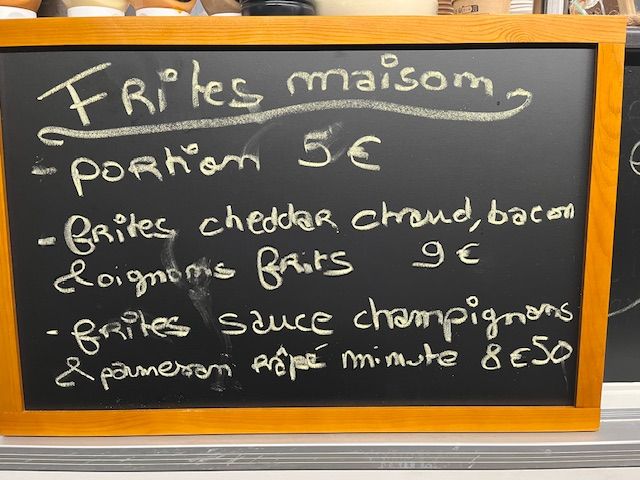 Frites maison
- portion 5€
- frites cheddar chaud, bacon
& oignons frits 9€
- frites sauce champignons
& parmesan râpé minute 8€50